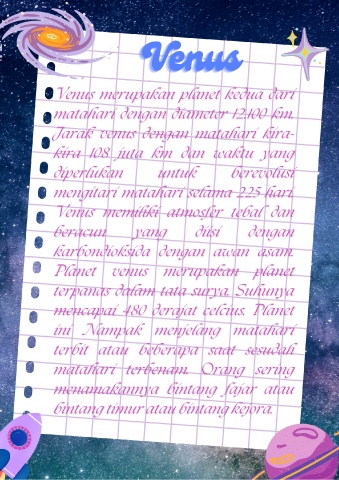 Venus
Venus merupakan planet kedua dari
matahari dengan diameter 12.100 km.
Jarak venus dengan matahari kira-
kira 108 juta km dan waktu yang
diperlukan untuk berevolusi
mengitari matahari selama 225 hari.
Venus memiliki atmosfer tebal dan
beracun yang diisi dengan
karbondioksida dengan awan asam.
Planet venus merupakan planet
terpanas dalam tata surya. Suhunya
mencapai 480 derajat celcius. Planet
ini Nampak menjelang matahari
terbit atau beberapa saat sesudah
matahari terbenam. Orang sering
menamakannya bintang fajar atau
bintang timur atau bintang kejora.